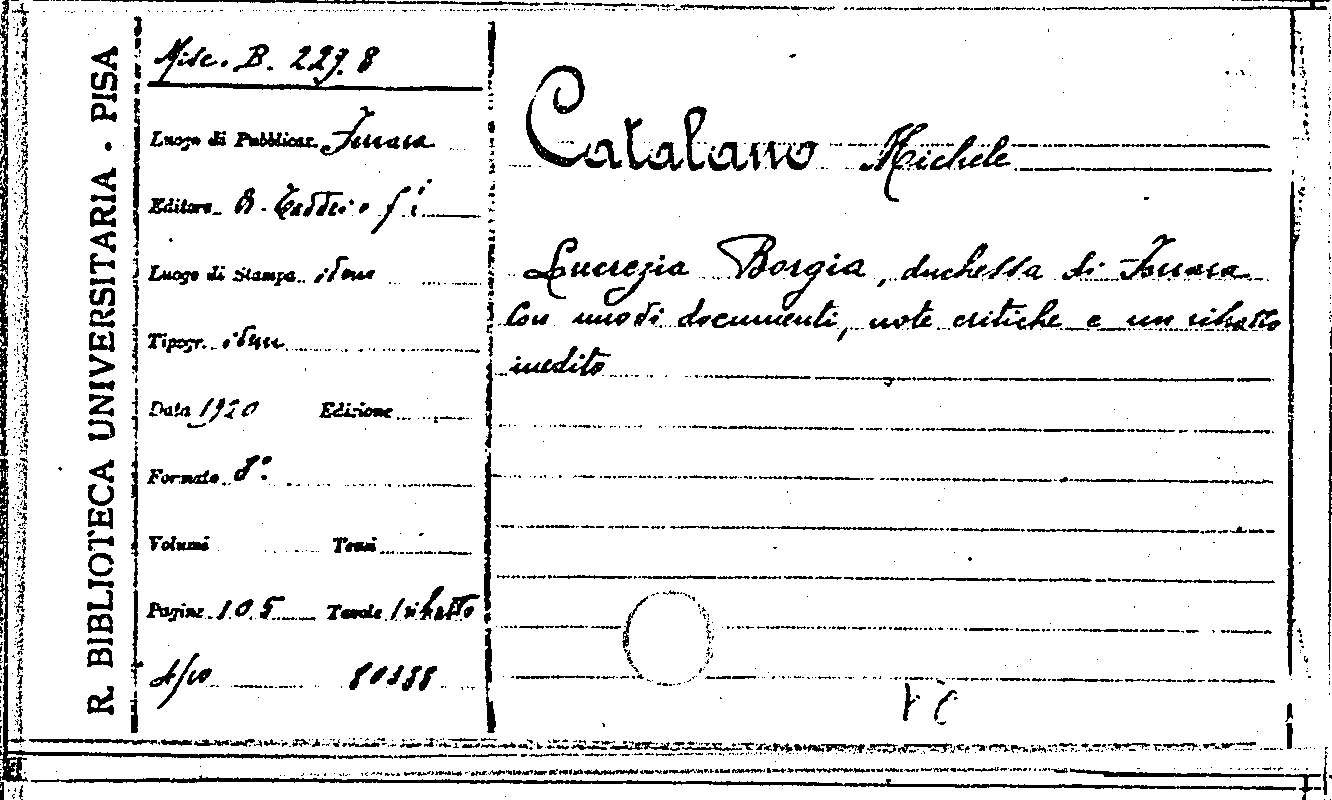 R. BIBLIOTECA UNIVERSITARIA - PISA
Misc. B. 227. 8
Luogo di Pubblicaz. Ferrara
Editore A. Taddei e fi
Luogo di Stampa idem
Tipogr. idem
Data 1920 Edizione
Formato 8°.
Volumi Tomi
Pagine 105 Tavole 1 ritratto
80388
Catalano Michele
Lucrezia Borgia, duchessa di Ferrara
Con nuovi documenti, note critiche e un ritratto
inedito